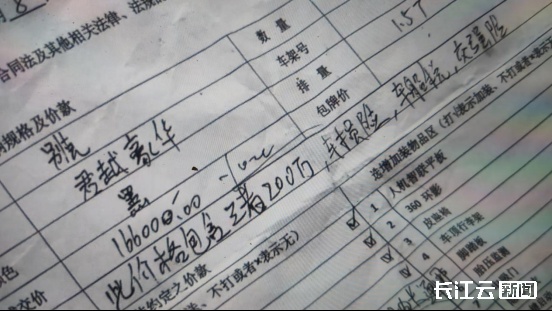 8
合同法及其他相关法律、法规
数量
车架号
1.5T
规格及价款
排量
别克
包牌价
君越豪华
黑
166000.00
此价格包含三者200万,车损险,车船税,交强险
选增加装物品区(打√表示加装、不打或者×表示
☑ 1 人机智联平板
☑ 2 360环影
☑ 3 皮座椅
☑ 4 车顶行李架
脚踏板
胎压监测
颜色
成交价
约定之价款
、不打或者×表示无)
长江云新闻